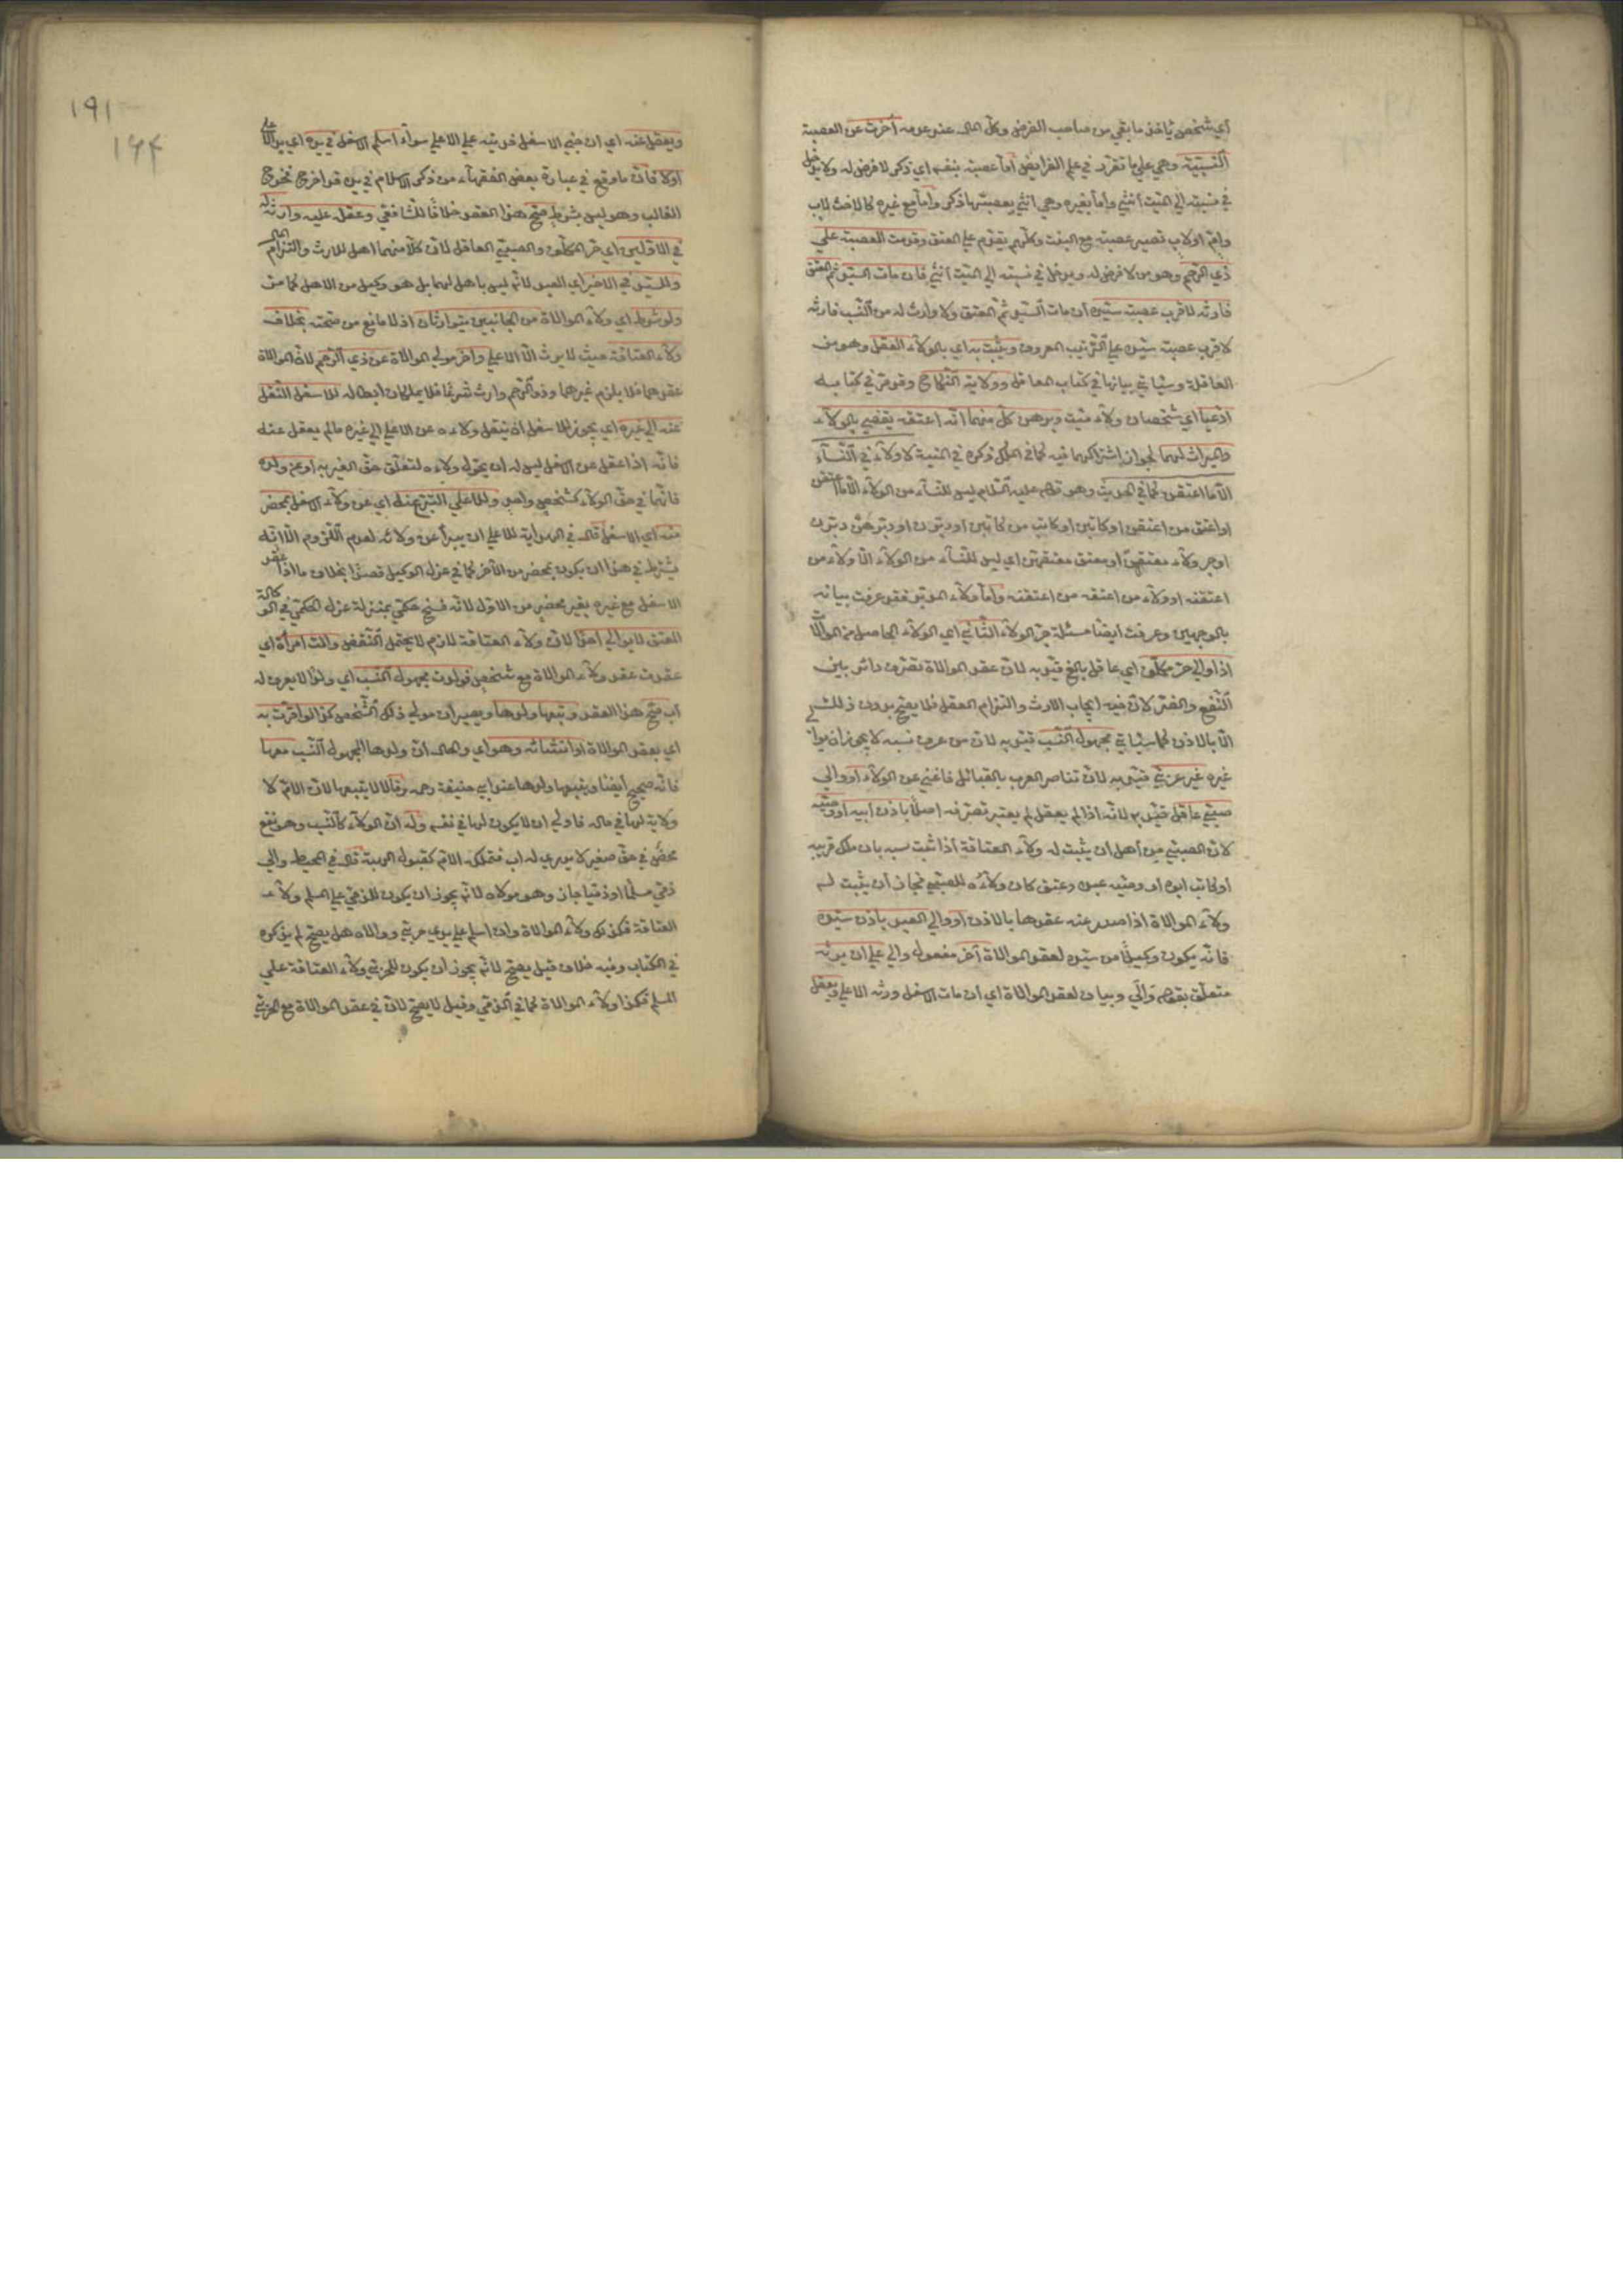 أي شخص يأخذ ما بقي من صاحب الفرض وكل المال عند عدمه أخرت عن العصبة
النسبية وهي على ما تقرر في علم الفرايض أما عصبة بنفسه اي ذكر لا فرض له ولا يدخل
في نسبته الى الميت أنثى وأما بغيره وهي انثى يعصبها ذكر وأما مع غيره كالاخت لاب
وام او لاب تصير عصبة مع البنت وكلهم يقدم على المعتق وقدمت العصبة على
ذي الرحم وهو من لا فرض له ويدخل في نسبته الى الميت أنثى فان مات السيد ثم المعتق
فارثه لاقرب عصبة سيده أن مات السيد ثم المعتق ولا وارث له من النسب فارثه
لاقرب عصبة سيده على الترتيب المعروف ويثبت به اي بالولاء العقل وهو من
العاقلة وسياتي بيانها في كتاب المعاقل وولاية النكاح وقد مر في كتابه
ادعيا اي شخصان ولاء ميت وبرهن كل منهما انه اعتقه يقضي بالولاء
والميراث لهما لجواز اشتراكهما فيه كما في الملك ذكره في المنية لا ولاء في النساء
الا ما اعتقن كما في الحديث وهو قوله عليه السلام ليس للنساء من الولاء الا ما اعتقن
او اعتق من اعتقن او كاتبن او كاتب من كاتبن او دبرن او دبر من دبرن
او جر ولاء معتقهن أو معتق معتقهن اي ليس للنساء من الولاء الا ولاء من
اعتقنه او ولاء من اعتقه من اعتقنه وأما ولاء المدبر فقد عرفت بيانه
بالوجهين وعرفت أيضا مسئلة جر الولاء الثاني اي الولاء الحاصل من الموالاة
اذا والى حر مكلف اي عاقل بالغ قيد به لان عقد الموالاة تصرف دائر بين
النفع والضر لان فيه ايجاب الارث والتزام العقل فلا يصح بدون ذلك
الا بالاذن كما سياتي مجهول النسب قيد به لان من عرف نسبه لا يجوز ان يوالي
غيره غير عربي قيد به لان تناصر العرب بالقبائل فاغنى عن الولاء أو والى
صبي عاقل قيد به لانه اذا لم يعقل لم يعتبر تصرفه اصلا باذن ابيه او وصيه
لان الصبي من أهل ان يثبت له ولاء العتاقة اذا ثبت سببه بان ملك قريبه
او كاتب ابوه او وصيه عبده وعتق كان ولاؤه للصبي فجاز أن يثبت له
ولاء الموالاة اذا صدر عنه عقدها بالاذن او والى العبد باذن سيده
فانه يكون وكيلا من سيده لعقد الموالاة آخر مفعول والى على ان يرثه
متعلق بقوله والى وبيان لعقد الموالاة اي ان مات الاسفل ورثه الاعلى ويعقل
191
164
ويعقل عنه اي ان جنى الاسفل فديته على الاعلى سواء اسلم الاسفل في يده اي يد الاعلى
اولا فان ما وقع في عبارة بعض الفقهاء من ذكر الاسلام في يده قد اخرج مخرج
الغالب وهو ليس بشرط صح هذا العقد خلافا للشافعي وعقله عليه وارثه له
في الاولين اي حر المكلف والصبي العاقل لان كلا منهما اهل للارث والتزام المال
وللسيد في الاخير اي العبد لانه ليس باهل لهما بل هو وكيل من الاهل كما مر
ولو شرط اي ولاء الموالاة من الجانبين يتوارثان اذ لا مانع من صحته بخلاف
ولاء العتاقة حيث لا يرث الا الاعلى وأخر مولى الموالاة عن ذي الرحم لان الموالاة
عقدهما فلا يلزم غيرهما وذو الرحم وارث شرعا فلا يملكان ابطاله للاسفل النقل
عنه الى غيره اي يجوز للاسفل ان ينقل ولاءه عن الاعلى الى غيره مالم يعقل عنه
فانه اذا عقل عن الاسفل ليس له ان يحول ولاءه لتعلق حق الغير به او عن ولده
فانهما في حق الولاء كشخص واحد وللاعلى التبرئ عنه اي عن ولاء الاسفل بمحضر
منه اي الاسفل قال في الهداية للاعلى ان يبرأ عن ولائه لعدم اللزوم الا انه
يشترط في هذا ان يكون بمحضر من الآخر كما في عزل الوكيل قصدا بخلاف ما اذا عقد
الاسفل مع غيره بغير محضر من الاول لانه فسخ حكمي بمنزلة عزل الحكمي في الوكالة
المعتق لا يوالي احدا لان ولاء العتاقة لازم لا يحتمل النقض والت امرأة اي
عقدت عقد ولاء الموالاة مع شخص فولدت مجهول النسب اي ولدا لا يعرف له
اب صح هذا العقد وتبعها ولدها ويصيران مولى ذلك الشخص كذا لو اقرت به
اي بعقد الموالاة او انشائه وهو اي والحال ان ولدها المجهول النسب معها
فانه صحيح أيضا ويتبعها ولدها عند ابي حنيفة رحمه وقالا لا يتبعها لان الام لا
ولاية لها في ماله فاولى ان لا يكون لها في نفسه وله ان الولاء كالنسب وهو نفع
محض في حق صغير لا يدري له اب فتملكه الام كقبول الهبة قال في المحيط والى
ذمي مسلما او ذميا جاز وهو مولاه لانه يجوز ان يكون للذمي على المسلم ولاء
العتاقة فكذلك ولاء الموالاة وان اسلم على يدي حربي ووالاه هل يصح لم يذكره
في الكتاب وفيه خلاف قيل يصح لانه يجوز أن يكون للحربي ولاء العتاقة على
المسلم فكذا ولاء الموالاة كما في الذمي وقيل لا يصح لان في عقد الموالاة مع الحربي